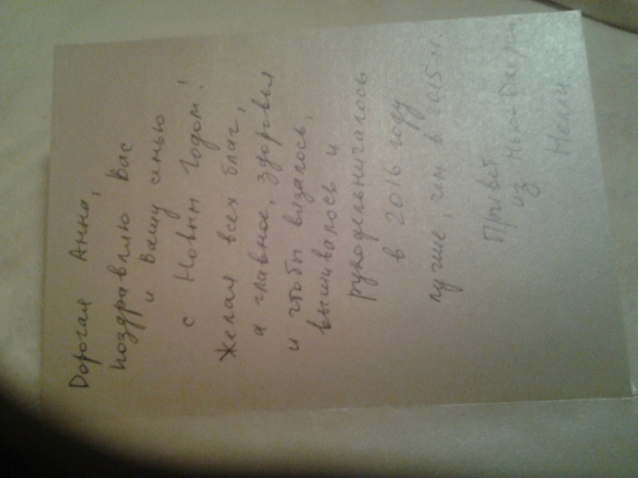 Дорогая Анна,
поздравляю Вас
и Вашу семью
с Новым Годом!
Желаю всех благ,
а главное, здоровья
и чтобы вязалось,
вышивалось и
рукодельничалось
в 2016 году
лучше, чем в 2015-м.
Привет
из Нью-Джерси
Нелли